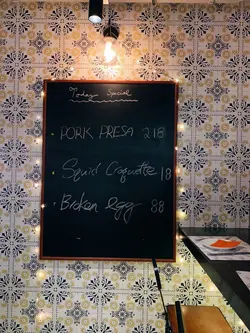 Today Special
• PORK PRESA 218
• Squid Croquette 18
• Broken egg 88